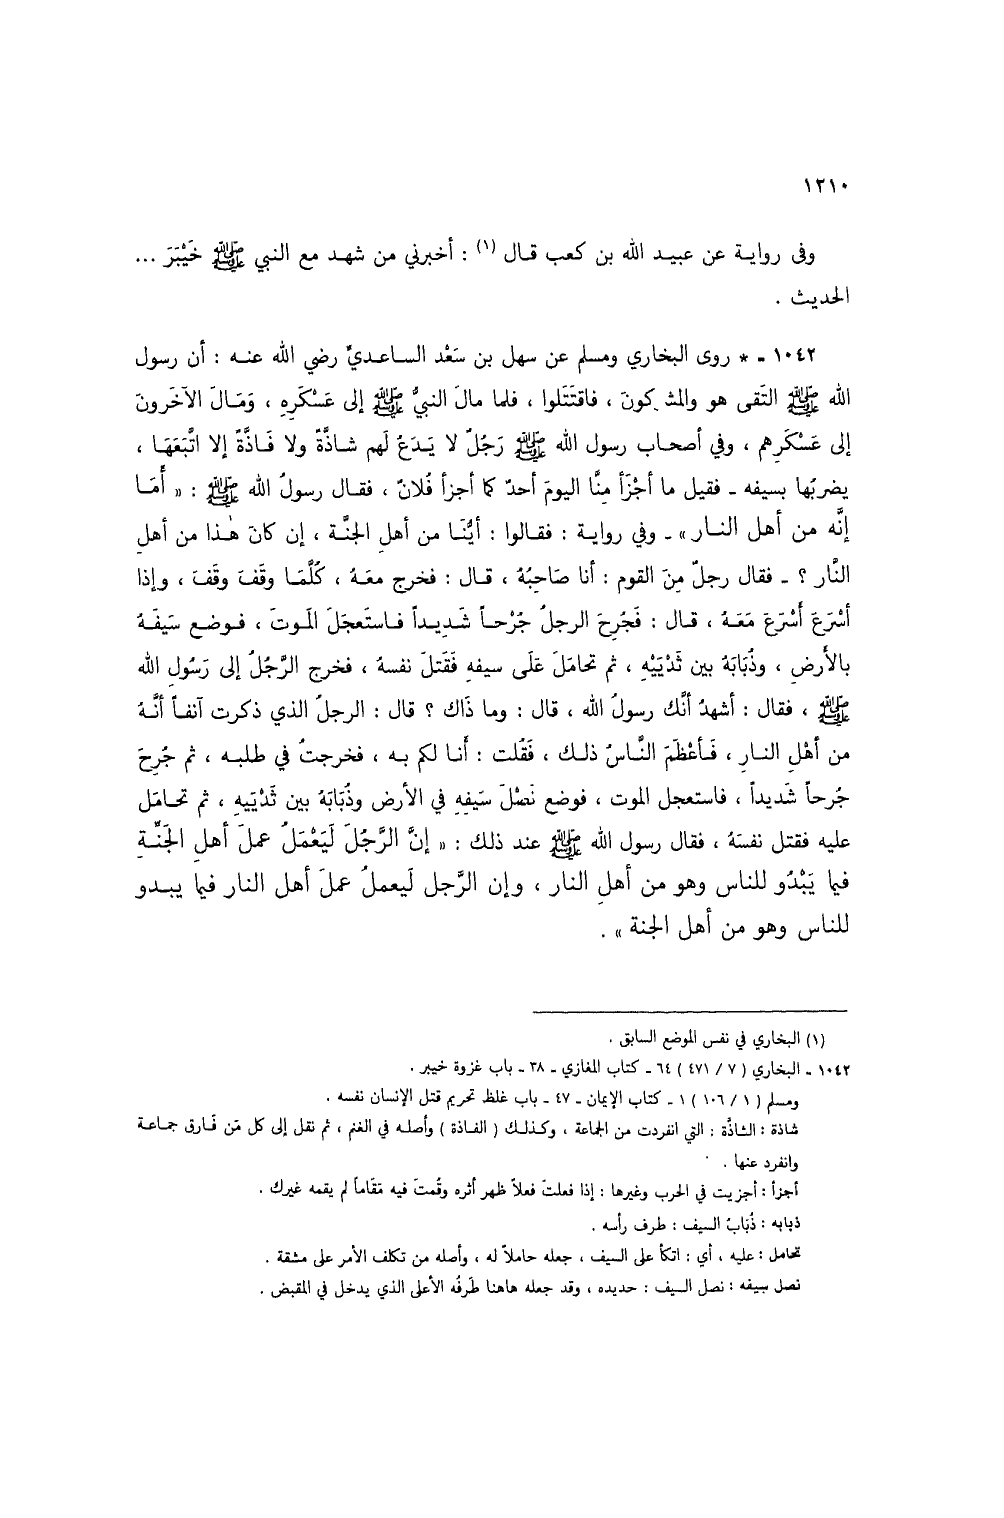 ١٢١٠
وفى رواية عن عبيد الله بن كعب قال (١) : أخبرني من شهد مع النبي ﷺ خَيْبَرَ ...
الحديث .
١٠٤٢ - * روى البخاري ومسلم عن سهل بن سَعْد الساعديِّ رضي الله عنه : أن رسول
الله ﷺ التَقى هو والمشركونَ ، فاقتَتَلوا ، فلما مالَ النبيُّ ﷺ إلى عَسْكَرِهِ ، وَمَالَ الآخَرونَ
إلى عَسْكَرِهم ، وفي أصحاب رسول الله ﷺ رَجُلٌ لا يَدَعُ لَهم شاذَّةً ولا فَاذَّةً إلا اتَّبَعَهَا ،
يضربُها بسيفه - فقيل ما أجْزَأَ مِنَّا اليومَ أحدٌ كما أجزأ فُلانٌ ، فقال رسولُ الله ﷺ : « أَمَا
إنَّه من أهل النار» - وفي رواية : فقالوا : أيُّنَا من أهلِ الجنَّة ، إن كانَ هٰذا من أهلِ
النَّار ؟ - فقال رجلٌ مِنَ القوم : أنا صَاحِبُهُ ، قال : فخرج معَهُ ، كُلَّمَا وقَفَ وقَفَ ، وإذا
أسْرَعَ أَسْرَعَ مَعَهُ ، قال : فَجُرِحَ الرجلُ جُرْحاً شَديداً فاستَعجَلَ الموتَ ، فوضع سَيفَهُ
بالأَرضِ ، وذُبَابَهُ بين ثَدْيَيْهِ ، ثم تحامَلَ عَلَى سيفهِ فَقَتلَ نفسهُ ، فخرج الرَّجُلُ إلى رَسُولِ الله
ﷺ ، فقال : أشهدُ أنَّك رسولُ الله ، قال : وما ذَاك ؟ قال : الرجلُ الذي ذكرت آنفاً أنَّهُ
من أهْلِ النارِ ، فَأعْظَمَ النَّاسُ ذلك ، فَقُلت : أَنا لكم به ، فخرجتُ في طلبه ، ثم جُرِحَ
جُرحاً شَديداً ، فاستعجل الموت ، فوضع نَصْلَ سَيفِهِ في الأرض وذُبَابَهُ بين ثَدْيَيهِ ، ثم تحامَل
عليه فقتل نفسَهُ ، فقال رسول الله ﷺ عند ذلك : « إنَّ الرَّجُلَ لَيَعْمَلُ عملَ أهلِ الجَنَّةِ
فيما يَبْدُو للناس وهو من أهلِ النار ، وإن الرَّجل لَيعملُ عملَ أهل النار فيما يبدو
للناس وهو من أهل الجنة » .
(١) البخاري في نفس الموضع السابق .
١٠٤٢ - البخاري ( ٧ / ٤٧١ ) ٦٤ - كتاب المغازي - ٣٨ - باب غزوة خيبر .
ومسلم ( ١ / ١٠٦ ) ١ - كتاب الإيمان - ٤٧ - باب غلظ تحريم قتل الإنسان نفسه .
شاذة : الشاذَّة : التي انفردت من الجماعة ، وكذلك ( الفاذة ) وأصله في الغنم ، ثم نقل إلى كل مَن فَارق جماعة
وانفرد عنها .
أجزأ : أجزيت في الحرب وغيرها : إذا فعلتَ فعلاً ظهر أثره وقُمتَ فيه مَقَاماً لم يقمه غيرك .
ذبابه : ذُبَابُ السيف : طرف رأسه .
تحامل : عليه ، أي : اتكأ على السيف ، جعله حاملاً له ، وأصله من تكلف الأمر على مشقة .
نصل سيفه : نصل السيف : حديده ، وقد جعله هاهنا طَرفُه الأعلى الذي يدخل في المقبض .